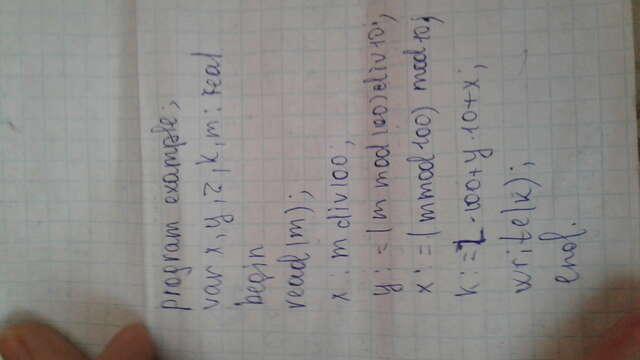 program example;
var x, y, z, k, m : real
begin
read(m);
x : m div 100;
y : = (m mod 100) div 10;
x : = (m mod 100) mod 10;
k : = z · 100 + y · 10 + x;
write(k);
end.